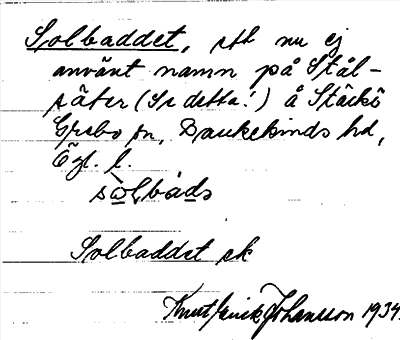 Solbaddet, ett nu ej
använt namn på Stål-
säter (Se detta!) å Stäckö
Grebo sn, Bankekinds hd,
Ögl. l.
sòlbàds
Solbaddet ek
Knut Erick Johansson 1934.